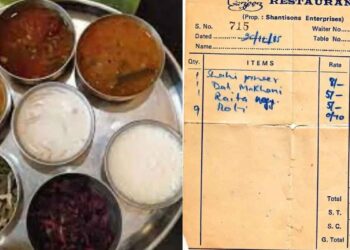 RESTAURANT
(Prop : Shantisons Enterprises)
S. No. 715 Waiter No.
Dated 20/12/85 Table No.
Qty. ITEMS Rate
1 Shahi paneer 8/-
1 Dal Makhani 5/-
1 Raita 5/-
9 Roti
Total
S. T.
S. C.
G. Total